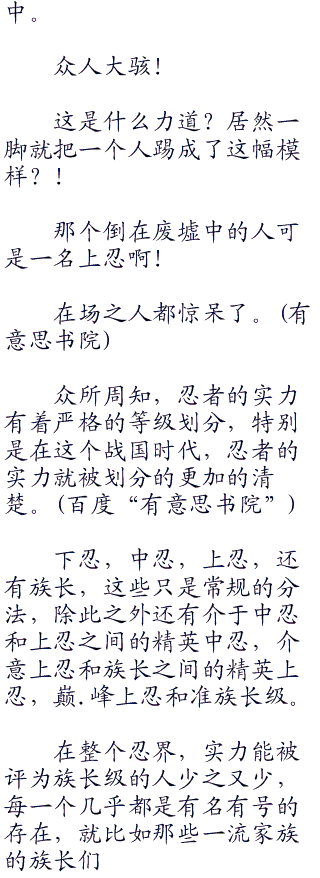 中。
众人大骇！
这是什么力道？居然一
脚就把一个人踢成了这幅模
样？！
那个倒在废墟中的人可
是一名上忍啊！
在场之人都惊呆了。(有
意思书院)
众所周知，忍者的实力
有着严格的等级划分，特别
是在这个战国时代，忍者的
实力就被划分的更加的清
楚。(百度“有意思书院”)
下忍，中忍，上忍，还
有族长，这些只是常规的分
法，除此之外还有介于中忍
和上忍之间的精英中忍，介
意上忍和族长之间的精英上
忍，巅.峰上忍和准族长级。
在整个忍界，实力能被
评为族长级的人少之又少，
每一个几乎都是有名有号的
存在，就比如那些一流家族
的族长们